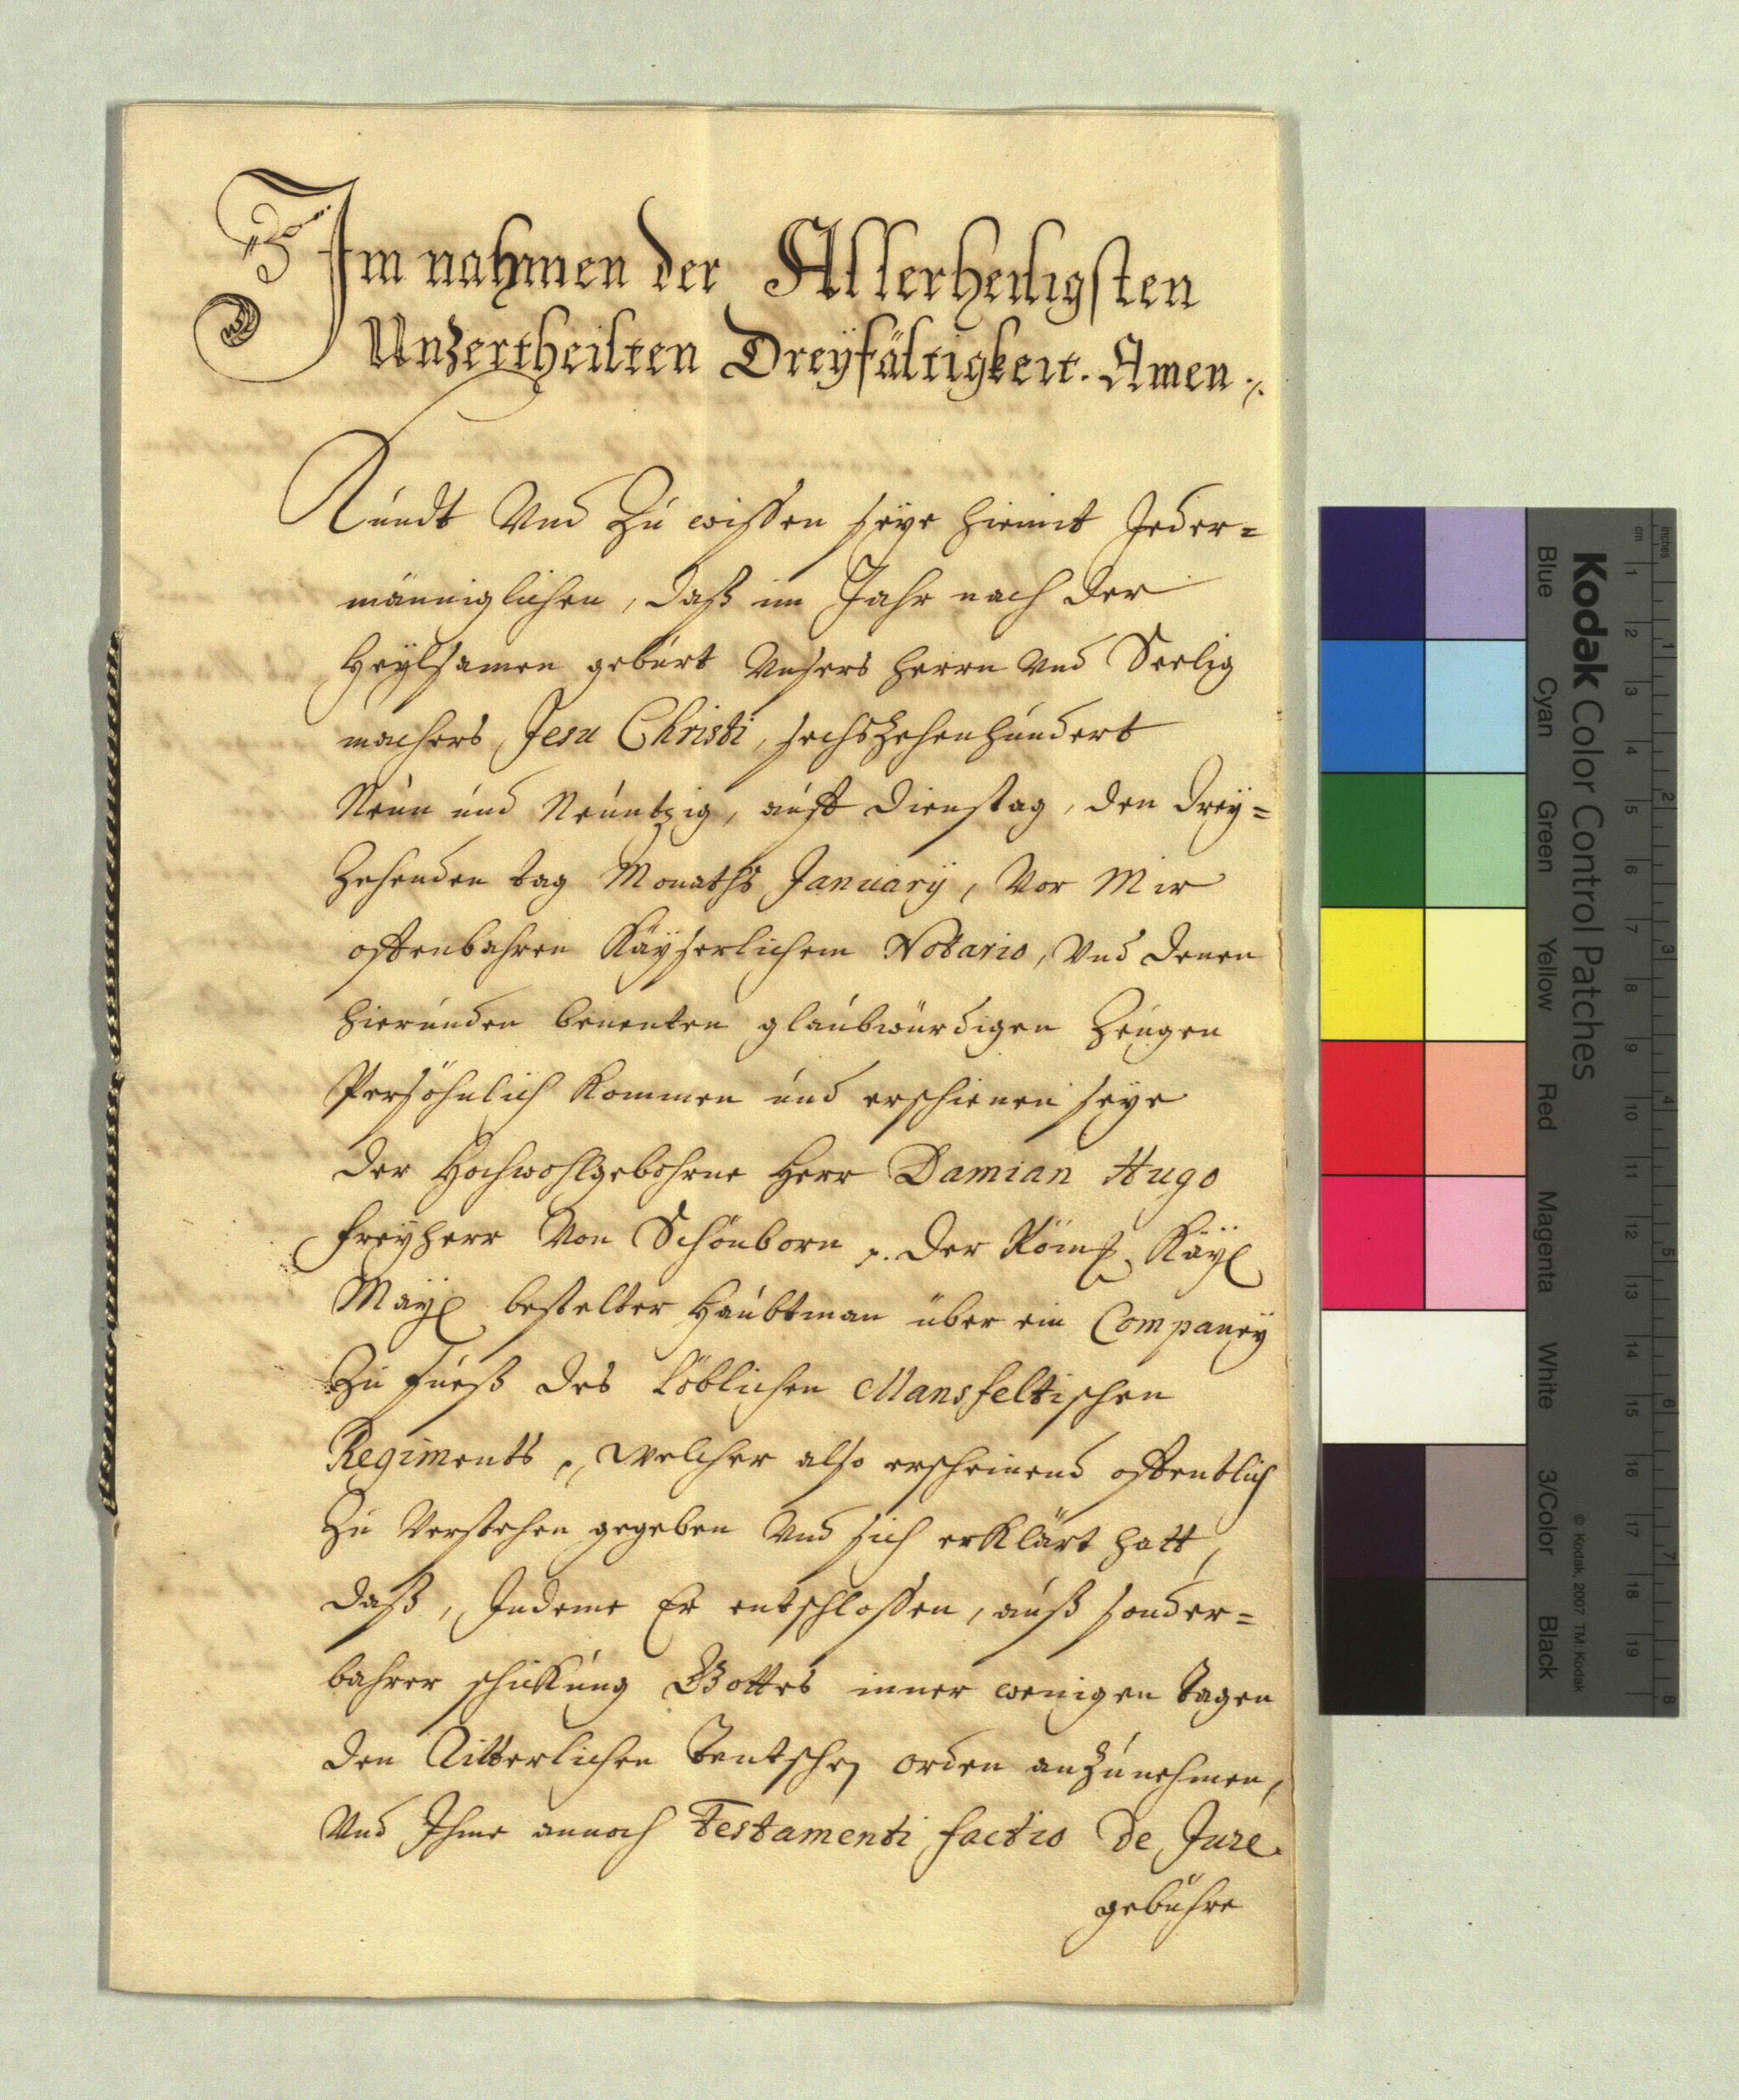 Im nahmen der Allerheiligsten
Unzertheilten Dreÿfältigkeit. Amen.
Kundt Vnd Zu wissen seye hiemit Jeder=
männiglichen, daß im Jahr nach der
Heÿlsamen geburt Vnsers herrn Vnd Seelig
machers Jesu Christi, sechszehenhundert
Neun und Neuntzig, auff Dienstag, den dreÿ=
zehenden tag Monaths Januarÿ, Vor Mir
offenbahren Käÿserlichem Notario, Vnd denen
hierunden benenten glaubwürdigen Zeugen
Persöhnlich kommen und erschienen seye
der Hochwohlgebohrne Herr Damian Hugo
Freÿherr Von Schönborn p. der Röm. Käÿ.
Maÿ. bestelter Haubtman über ein Companeÿ
Zu Fueß des Löblichen Mansfeltischen
Regiments p, welcher also erscheinend offentlich
Zu Verstehen gegeben Vnd sich erklärt hatt,
daß, Indeme Er entschlossen, auß sonder=
bahrer schickung Gottes inner wenigen tagen
den Ritterlichen Teutschen orden anzunehmen,
Vnd Ihme annoch Testamenti factio de Jure
gebühre
inches
cm
1 2 3 4 5 6 7 8
1 2 3 4 5 6 7 8 9 10 11 12 13 14 15 16 17 18 19
Kodak Color Control Patches
© Kodak, 2007 TM: Kodak
Blue Cyan Green Yellow Red Magenta White 3/Color Black